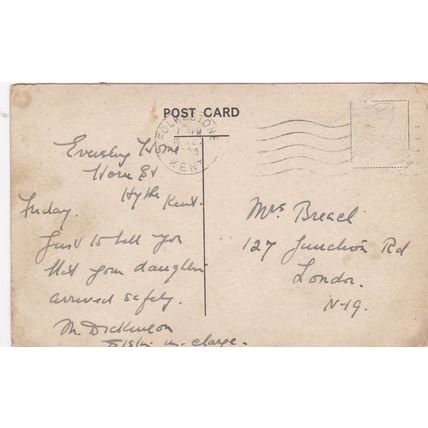 POST CARD
FOLKESTONE
KENT
Eversley Home
Horn St
Hythe
Kent.
Friday.
Just to tell you
that your daughter
arrived safely.
M. Dickinson
in-charge.
Mrs Breach
127 Junction Rd
London.
N-19.